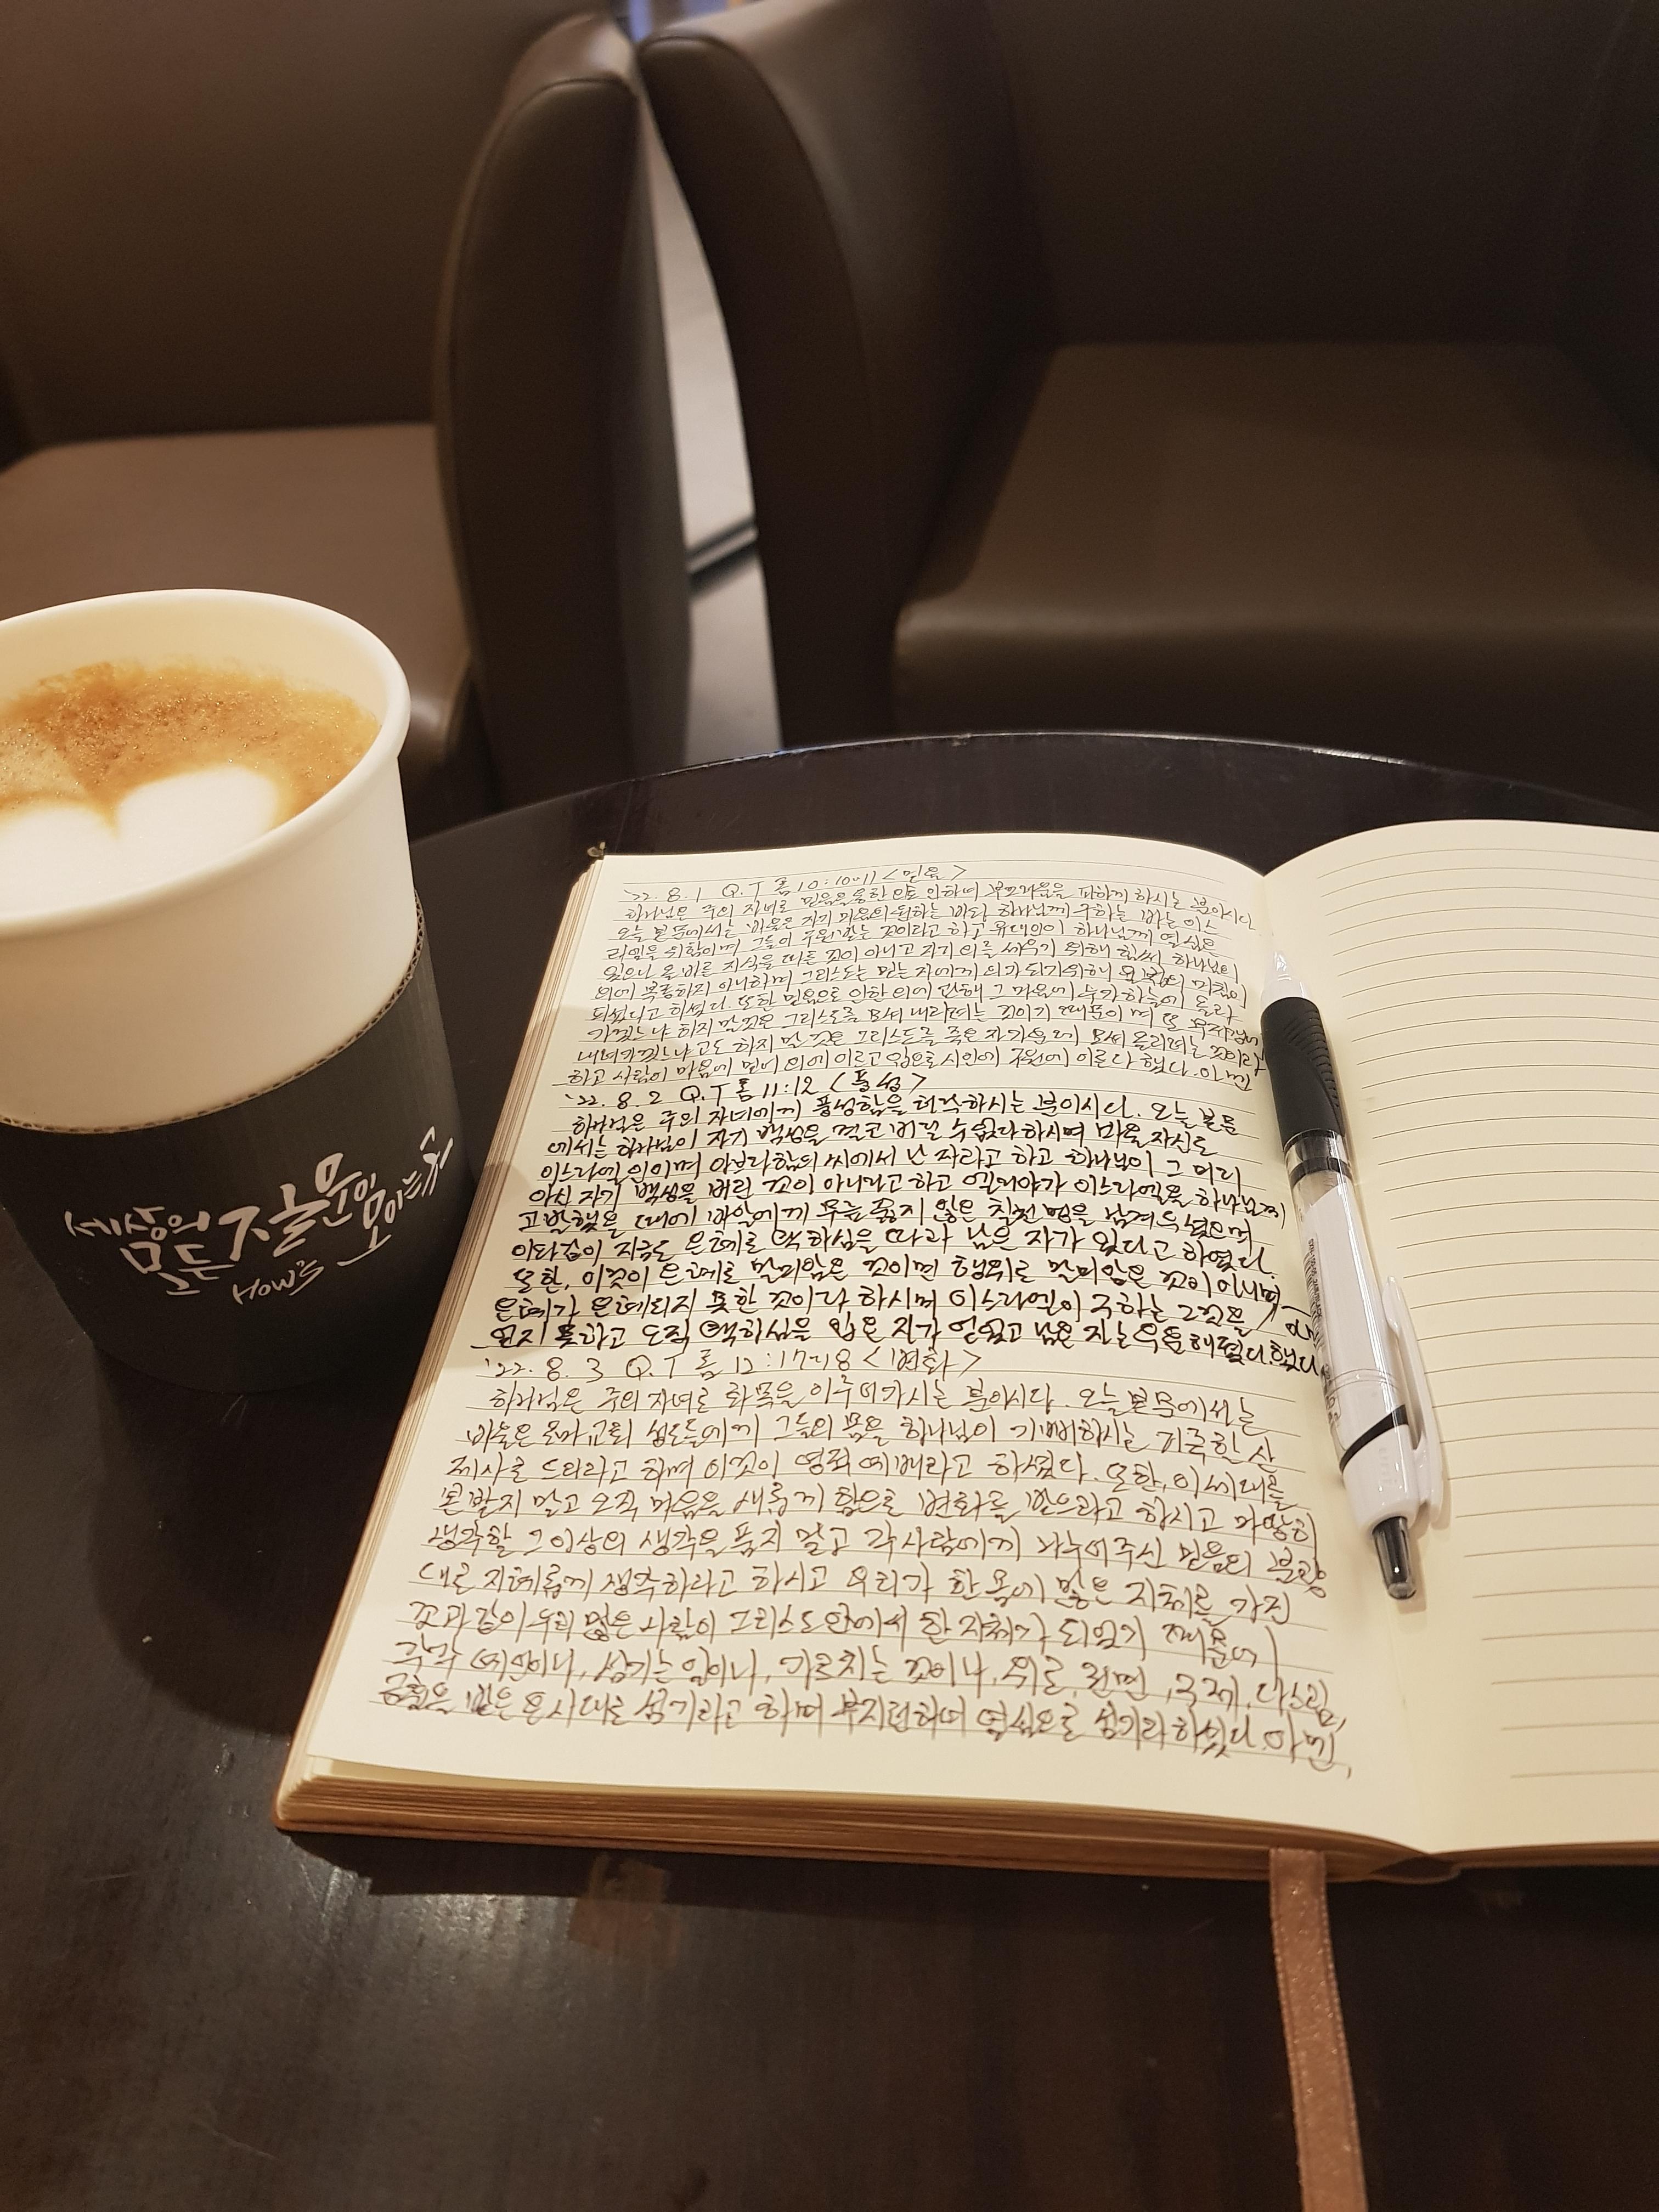 세상의
모든 질문이
모이는 곳
HOW'S
'22. 8. 1 Q.T 롬 10:10-11 <믿음>
하나님은 주의 자녀로 믿음을 통한 으로 인하여 부끄러움을 피하게 하시는 분이시다.
오늘 본문에서는 바울은 자기 마음의 원하는 바와 하나님께 구하는 바는 이스
라엘을 위함이며 그들이 구원받는 것이라고 하고 유대인이 하나님께 열심은
있으나 올바른 지식을 따른 것이 아니고 자기 의를 세우기 위해 힘써 하나님의
의에 복종하지 아니하며 그리스도는 믿는 자에게 의가 되기위해 율법의 마침이
되셨다고 하셨다. 또한 믿음으로 인한 의에 관해 그 마음에 누가 하늘에 올라
가겠느냐 하지 말것은 그리스도를 모셔 내리려는 것이기 때문이며 또 무저갱에
내려가겠느냐고도 하지 말 것은 그리스도를 죽은 자 가운데 모셔 올리려는 것이라
하고 사람이 마음에 믿어 의에 이르고 입으로 시인에 구원에 이른다 했다. 아멘
'22. 8. 2 Q.T 롬 11:12 <풍성>
하나님은 주의 자녀에게 풍성함을 허락하시는 분이시다. 오늘 본문
에서는 하나님이 자기 백성을 결코 버릴 수 없다 하시며 바울 자신도
이스라엘인이며 아브라함의 씨에서 난 자라고 하고 하나님이 그 미리
아신 자기 백성을 버린 것이 아니라고 하고 엘리야가 이스라엘을 하나님께
고발했을 때에 바알에게 무릎 꿇지 않은 칠천 명을 남겨 두셨으며
이와같이 지금도 은혜로 택하심을 따라 남은 자가 있다고 하였다.
또한, 이것이 은혜로 말미암은 것이면 행위로 말미암은 것이 아니며
은혜가 은혜되지 못한 것이라 하시며 이스라엘이 구하는 그것을
얻지 못하고 오직 택하심을 입은 자가 얻었고 남은 자는 우둔해졌다.했다.
'22. 8. 3 Q.T 롬 12:17-18 <변화>
하나님은 주의 자녀로 화목을 이루어가시는 분이시다. 오늘 본문에서는
바울은 로마교회 성도들에게 그들의 몸을 하나님이 기뻐하시는 거룩한 산
제사로 드리라고 하며 이것이 영적 예배라고 하셨다. 또한, 이 세대를
본받지 말고 오직 마음을 새롭게 함으로 변화를 받으라고 하시고 마땅히
생각할 그 이상의 생각을 품지 말고 각 사람에게 나누어주신 믿음의 분량
대로 지혜롭게 생각하라고 하시고 우리가 한 몸에 많은 지체를 가진
것과 같이 우리 많은 사람이 그리스도 안에서 한 지체가 되었기 때문에
각각 예언이나, 섬기는 일이나, 가르치는 것이나, 위로, 권면, 구제, 다스림,
긍휼을 받은 은사대로 섬기라고 하며 부지런하여 열심으로 섬기라 하셨다. 아멘,